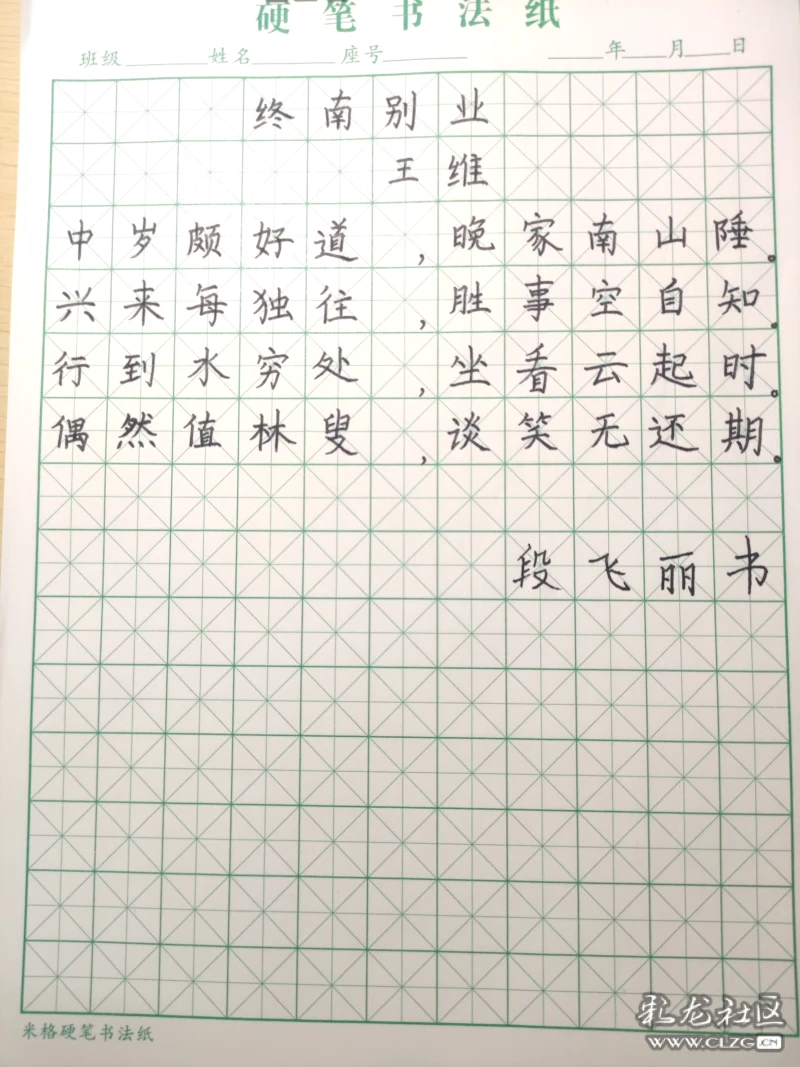 硬笔书法纸
班级 姓名 座号 年 月 日
终南别业
王维
中岁颇好道,晚家南山陲。
兴来每独往,胜事空自知。
行到水穷处,坐看云起时。
偶然值林叟,谈笑无还期。
段飞丽书
米格硬笔书法纸
彩龙社区
WWW.CLZG.CN